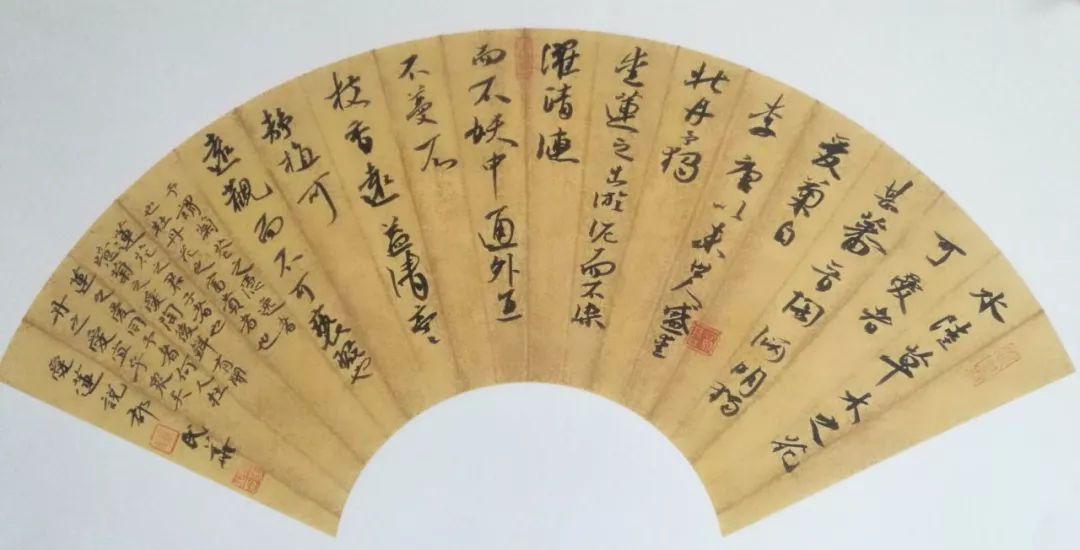 水陸草木之花
可愛者
甚蕃晋陶渊明獨
爱菊自
李唐以来世人盛爱
牡丹予獨
爱蓮之出淤泥而不染
濯清漣
而不妖中通外直
不蔓不
枝香遠益清亭々
静植可
遠觀而不可褻玩也
予謂菊花之隱逸者
也牡丹花之富貴者也
蓮花之君子者也
噫菊之愛陶後鮮有聞
蓮之愛同予者何人牡
丹之愛宜乎衆矣
愛蓮説 邵